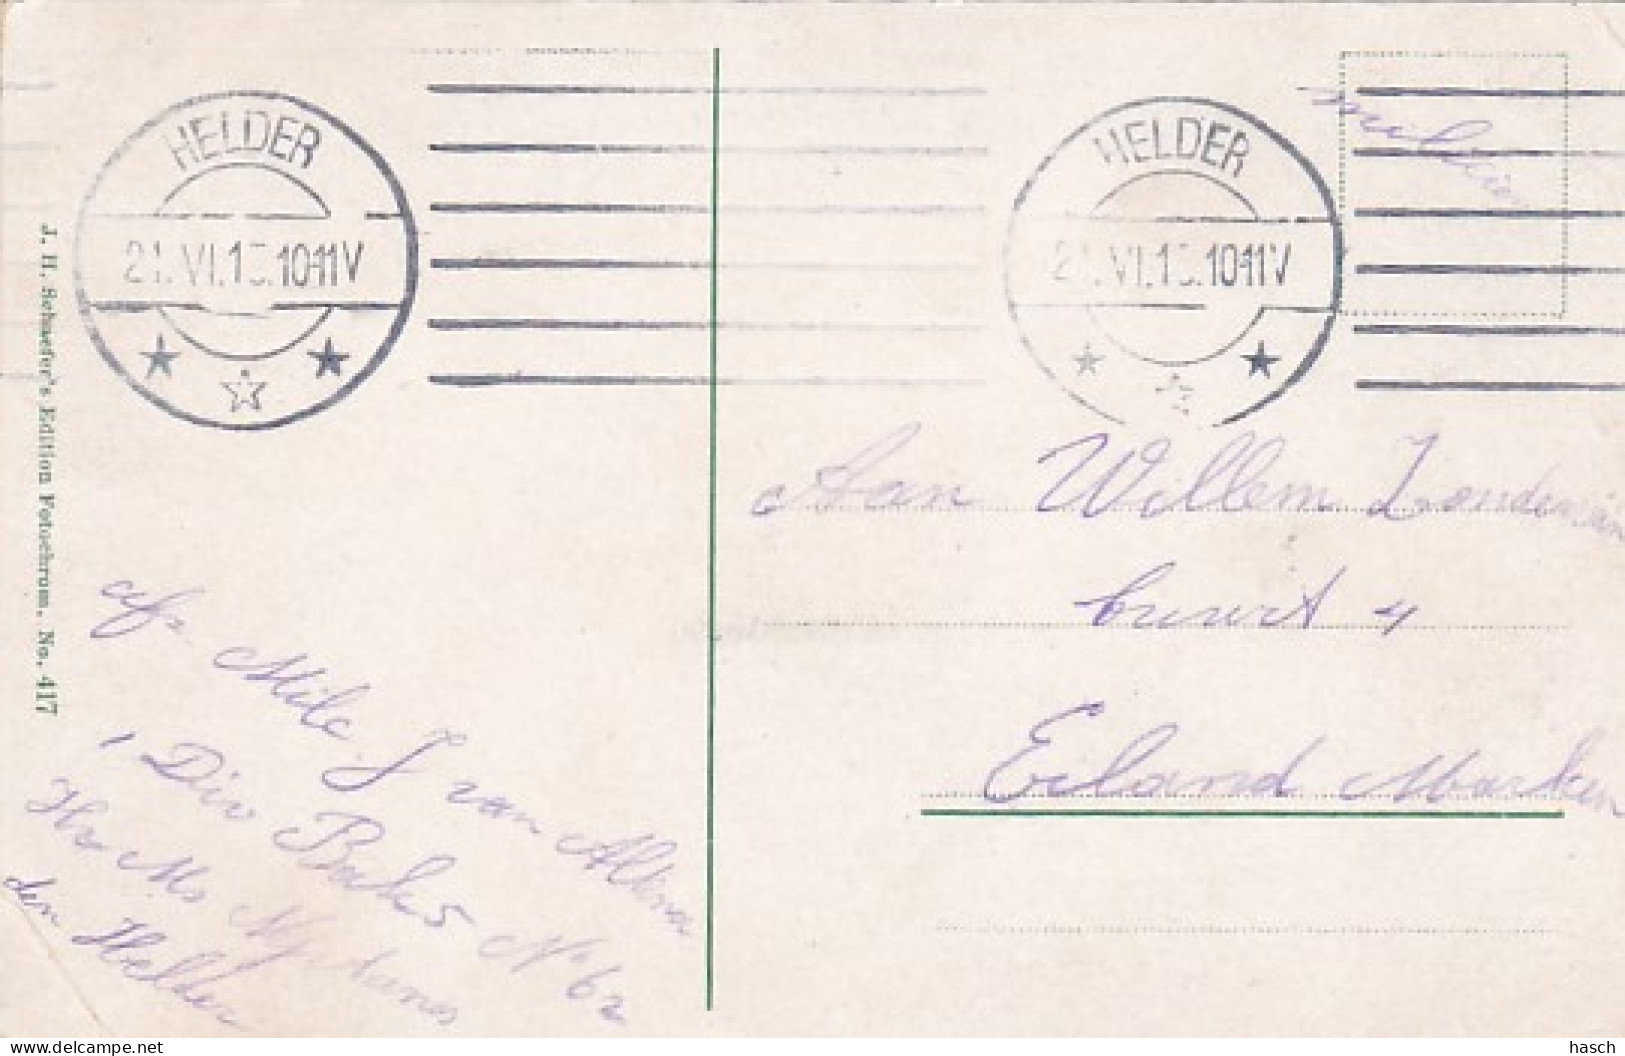 HELDER
21.VI.1 .10-11V
HELDER
2 .VI.1 .10-11V
J. H. Schaefer's Edition Fotochrom. No. 417
Aan Willem Zondervan
buurt 4
Eiland Marken
afz. Milc. J van Altena
1 Div Bak 5 No 62
Hr Ms Neptunus
den Helder
hasch